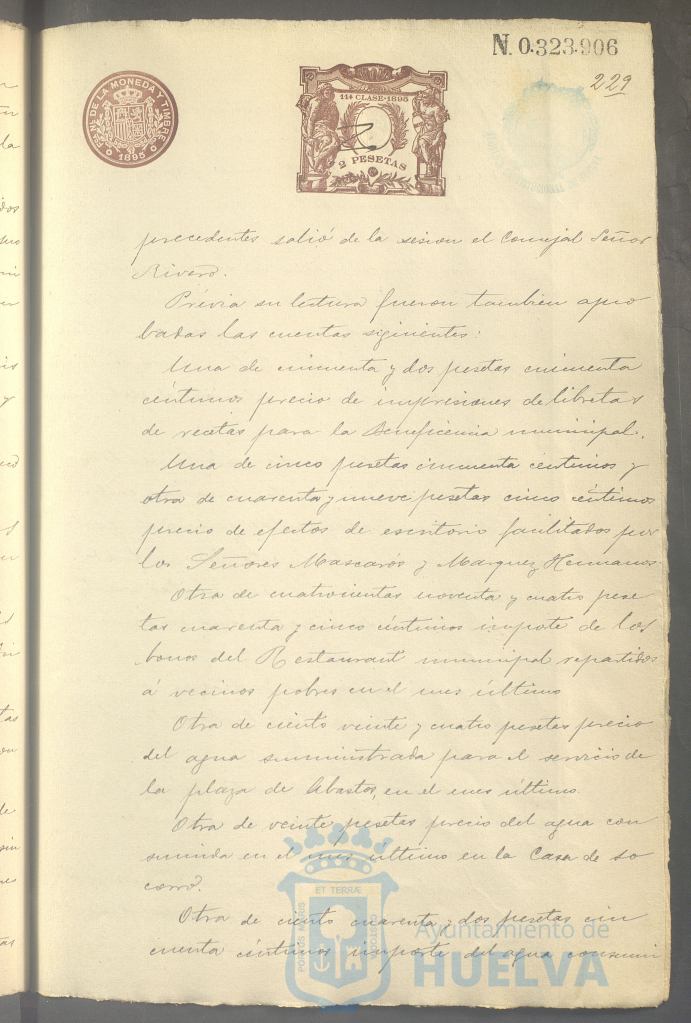 N. 0.323.906
229
FCA. N. DE LA MONEDA Y TIMBRE
1895
11ª CLASE-1895
2 PESETAS
precedentes salió de la sesion el Concejal Señor
Rivero.
Prévia su lectura fueron tambien apro
badas las cuentas siguientes:
Una de cincuenta y dos pesetas cincuenta
céntimos precio de impresiones de libretas
de recetas para la Beneficencia municipal.
Una de cinco pesetas cincuenta céntimos y
otra de cuarenta y nueve pesetas cinco céntimos
precio de efectos de escritorio facilitados por
los Señores Mascarós y Marquez Hermanos.
Otra de cuatrocientas noventa y cuatro pese
tas cuarenta y cinco céntimos importe de los
bonos del Restaurant municipal repartidos
á vecinos pobres en el mes último
Otra de ciento veinte y cuatro pesetas precio
del agua suministrada para el servicio de
la plaza de Abastos, en el mes último.
Otra de veinte pesetas precio del agua con
sumida en el mes último en la Casa de so
corro.
Otra de ciento cuarenta y dos pesetas cin
cuenta céntimos importe del agua consumi
PORTUS MARIS
ET TERRÆ
CUSTODIA
Ayuntamiento de
HUELVA